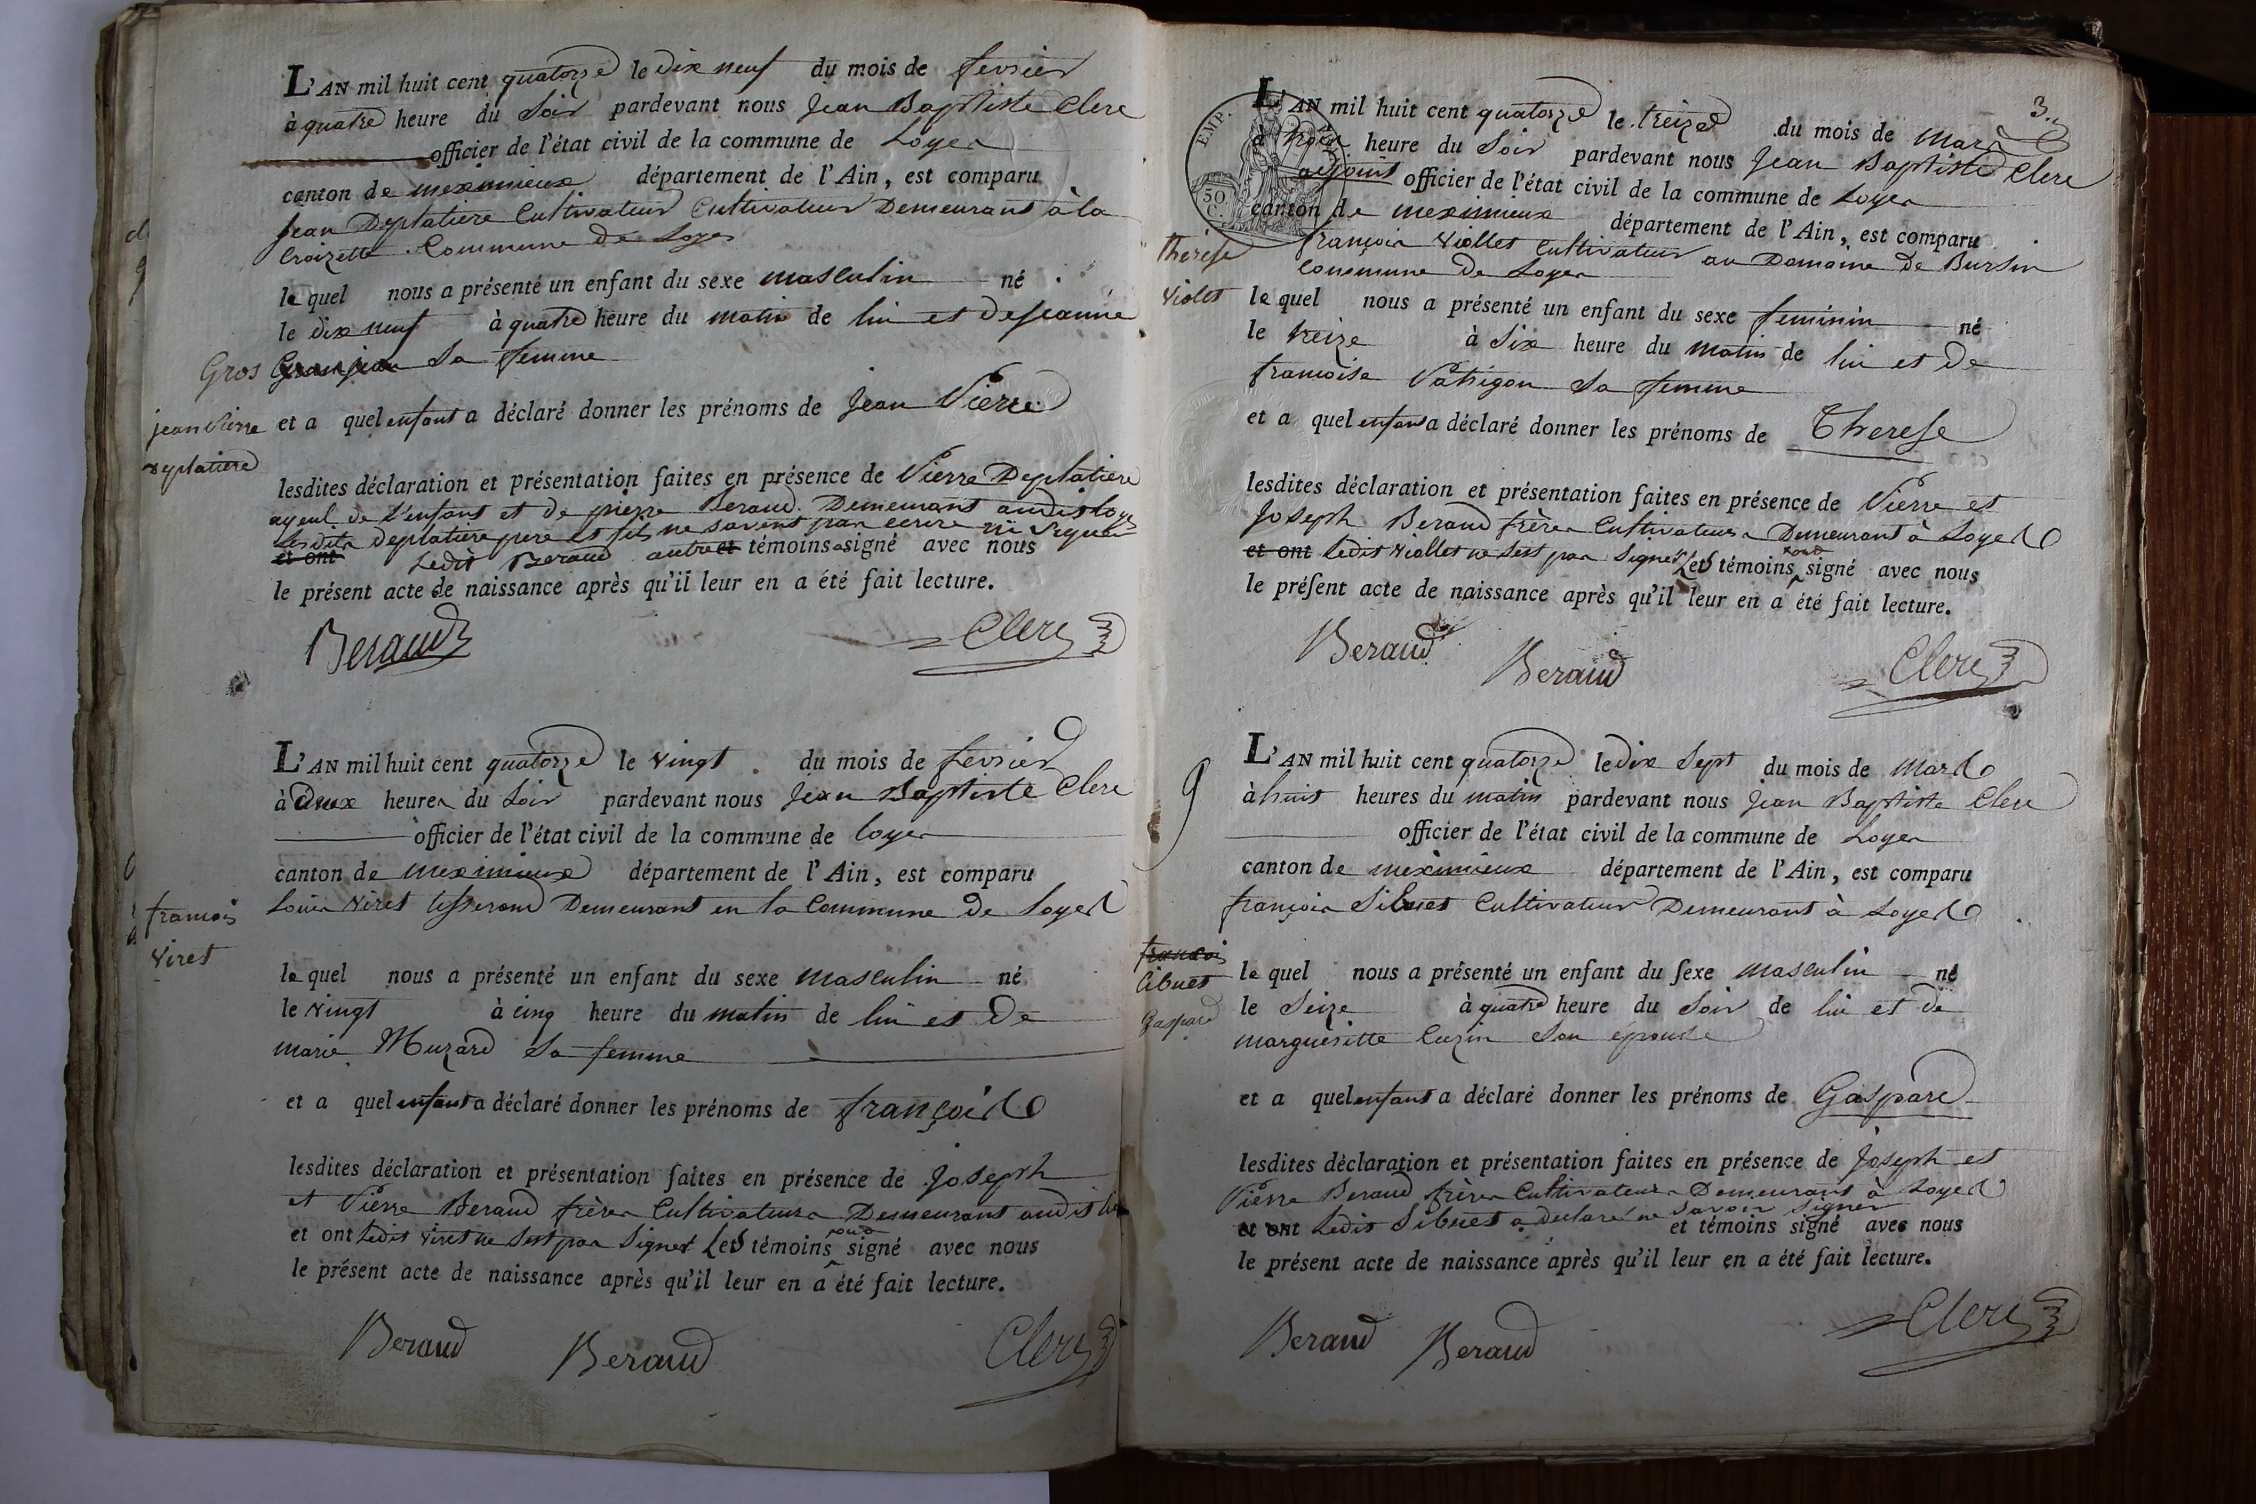 L'AN mil huit cent quatorze le dix neuf du mois de fevrier
à quatre heure du Soir pardevant nous Jean Baptiste Clerc
officier de l'état civil de la commune de Loyes
canton de meximieux département de l'Ain, est comparu
Jean Deplatiere Cultivateur Cultivateur Demeurant à la
Croizette Commune de Loyes
lequel nous a présenté un enfant du sexe masculin né
le dix neuf à quatre heure du matin de lui et de Jeanne
Gros Granjean Sa femme
jean Pierre
deplatiere
et a quel enfant a déclaré donner les prénoms de Jean Pierre
lesdites déclaration et présentation faites en présence de Pierre Deplatiere
ayeul de l'enfant et de pierre Beraud Demeurant audit Loyes
Lesdits deplatiere pere et fils ne savent pas ecrire ni Signer
et ont Ledit Beraud autre et témoins a signé avec nous
le présent acte de naissance après qu'il leur en a été fait lecture.
Beraud Clerc
L'AN mil huit cent quatorze le vingt du mois de fevrier
à Deux heures du Soir pardevant nous Jean Baptiste Clerc
officier de l'état civil de la commune de loyes
canton de meximieux département de l'Ain, est comparu
Louis Viret tisserand Demeurant en la Commune de Loyes
francois
Viret
lequel nous a présenté un enfant du sexe masculin né
le vingt à cinq heure du matin de lui et De
marie Muzard Sa femme
et a quel enfant a déclaré donner les prénoms de françois
lesdites déclaration et présentation faites en présence de Joseph
et Pierre Beraud frères Cultivateurs Demeurant audit
et ont Ledit Viret ne Sest pas Signer Les témoins sous signé avec nous
le présent acte de naissance après qu'il leur en a été fait lecture.
Beraud Beraud Clerc
3
EMP.
50
C.
L'AN mil huit cent quatorze le treize du mois de Mars
à trois heure du Soir pardevant nous Jean Baptiste Clerc
adjoint officier de l'état civil de la commune de Loyes
canton de meximieux département de l'Ain, est comparu
françois Viollet Cultivateur au Domaine de Bursin
Commune de Loyes
Therese
Violet
lequel nous a présenté un enfant du sexe feminin né
le treize à Six heure du matin de lui et De
francoise Patrigon Sa femme
et a quel enfant a déclaré donner les prénoms de Therese
lesdites déclaration et présentation faites en présence de Pierre et
Joseph Beraud frères Cultivateurs Demeurant à Loyes
et ont Ledit Viollet ne Sest pas Signer Les témoins sous signé avec nous
le présent acte de naissance après qu'il leur en a été fait lecture.
Beraud Beraud Clerc
9
L'AN mil huit cent quatorze le dix Sept du mois de Mars
à huit heures du matin pardevant nous Jean Baptiste Clerc
officier de l'état civil de la commune de Loyes
canton de meximieux département de l'Ain, est comparu
françois Sibuet Cultivateur Demeurant à Loyes
francois
Cibuet
Gaspard
lequel nous a présenté un enfant du sexe masculin né
le Seize à quatre heure du Soir de lui et de
margueritte Cuzin Son épouse
et a quel enfant a déclaré donner les prénoms de Gaspard
lesdites déclaration et présentation faites en présence de Joseph et
Pierre Beraud frères Cultivateurs Demeurant à Loyes
et ont Ledit Sibuet a Declaré ne Savoir Signer et témoins signé avec nous
le présent acte de naissance après qu'il leur en a été fait lecture.
Beraud Beraud Clerc